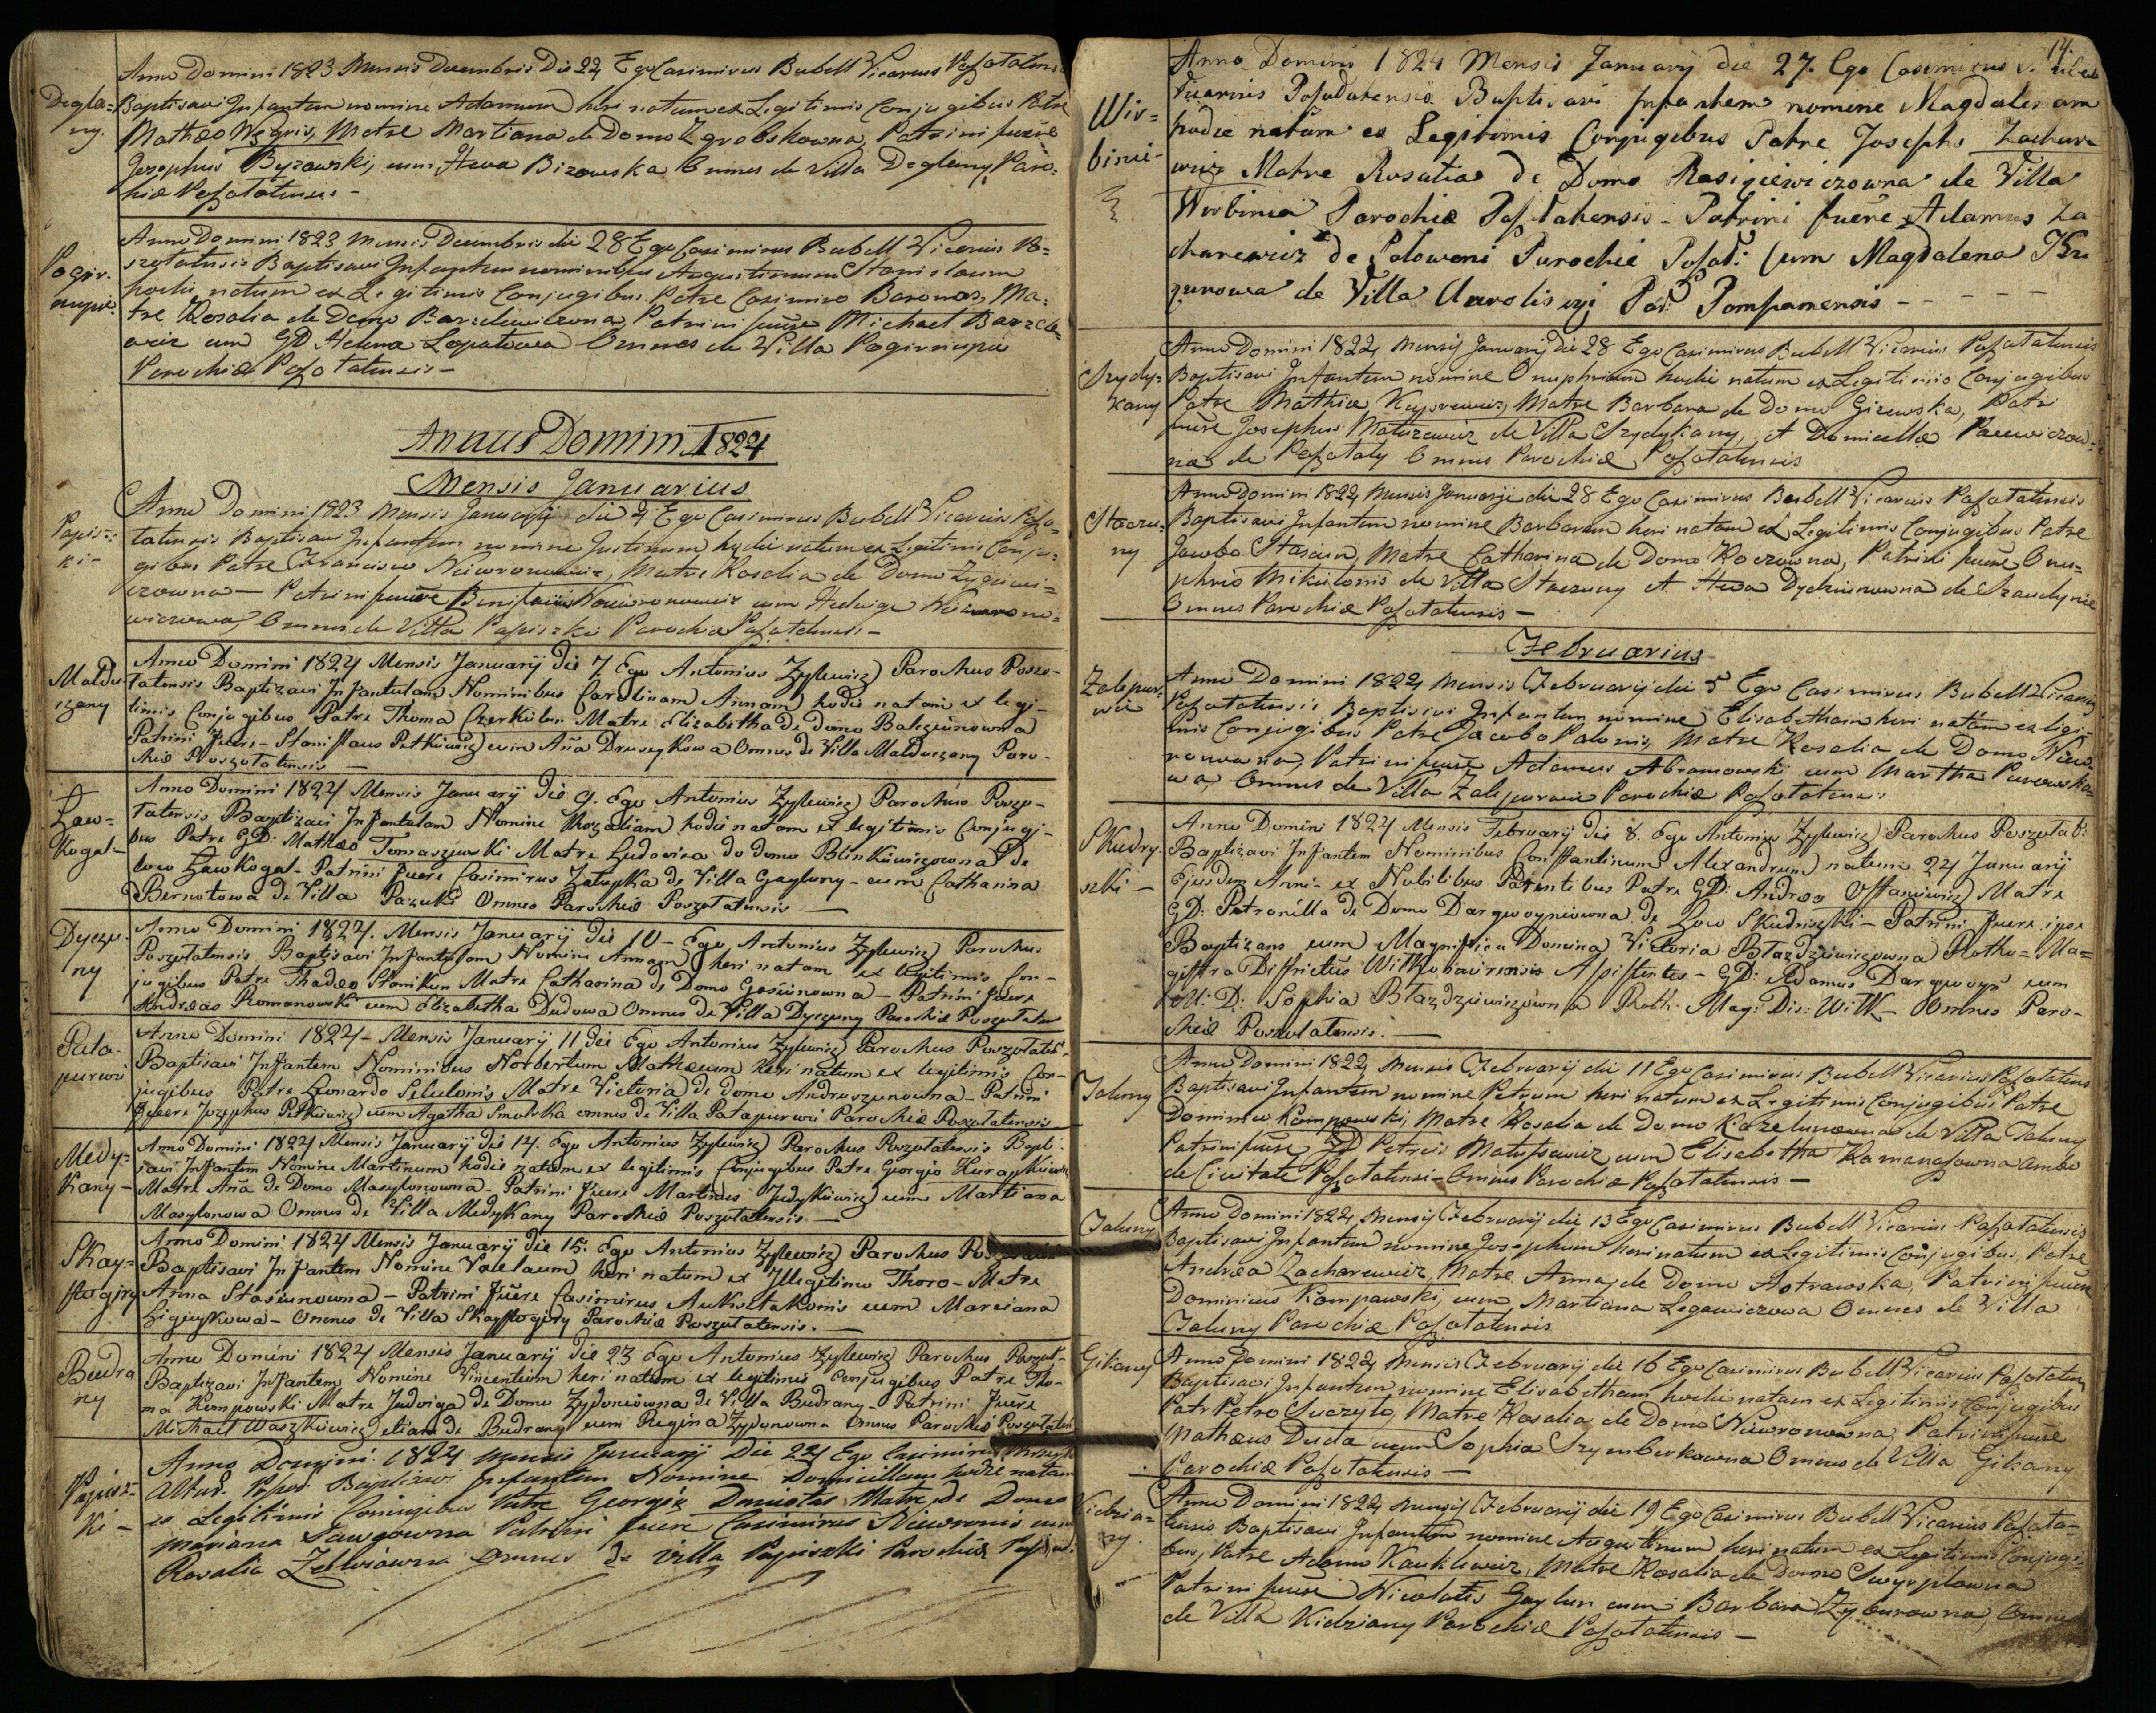 Degla=
ny.
Anno Domini 1823 Mensis Decembris Die 24 Ego Casimirus Bubell Vicarius Poszotatensis
Baptisavi Infantem nomine Adamum heri natum ex Legitimis Conjugibus Patre
Mathæo Węgris, Matre Martiana de Domo Zgrobskowna, Patrini fuere
Josephus Byzowski, cum Ewa Bizowska Omnes de Villa Deglany Paro=
chiæ Poszotatensis -
Pogir=
nupie.
Anno Domini 1823 Mensis Decembris die 28 Ego Casimirus Bubell Vicarius Po=
szotatensis Baptisavi Infantem nominibus Augustinum Stanislaum
hodie natum ex Legitimis Conjugibus Patre Casimiro Baronas, Ma=
tre Rosalia de Domo Barzdiewiczowna, Patrini fuere Michael Barzde
wicz cum GD Helena Lopatowa Omnes de Villa Pogirnupie
Parochiæ Poszotatensis -
Annus Domini 1824
Mensis Januarius
Papisz=
ki -
Anno Domini 1823 Mensis Januarij die 4 Ego Casimirus Bubell Vicarius Poszo=
tatensis Baptisavi Infantem nomine Justinum hodie natum ex Legitimis Conju=
gibus Patre Francisco Niewronowicz, Matre Rosalia de Domo Zygiewi=
czowna - Patrini fuere Bonifacius Niewronowicz cum Hedwige Niewrono=
wiczowa, Omnes de Villa Papiszki Parochiæ Poszotatensis -
Maldu
czany
Anno Domini 1824 Mensis Januarij die 7 Ego Antonius Zyflewicz Parochus Poszo-
tatensis Baptizavi Infantulam Nominibus Carolinam Annam hodie natam ex legi-
timis Conjugibus Patre Thoma Czerkilun Matre Elizabetha de Domo Balczunowna
Patrini fuere - Stanislaus Petkiewicz cum Aña Druseykowa Omnes de Villa Malduczany Paro-
chiæ Poszotatensis -
Law=
kogal-
Anno Domini 1824 Mensis Januarij die 9. Ego Antonius Zyflewicz Parochus Poszo-
tatensis Baptizavi Infantulam Nomine Rozaliam hodie natam ex legitimis Conjugi-
bus Patre GD: Mathæo Tomaszewski Matre Ludovica de Domo Blinkiewiczowna De
loco Lawkogal - Patrini fuere Casimirus Zalupka de Villa Gayluny - cum Catharina
Bernotowa de Villa Pazuki Omnes Parochiæ Poszotatensis -
Dyczu=
ny
Anno Domini 1824. Mensis Januarij die 10 - Ego Antonius Zyflewicz Parochus
Poszotatensis, Baptisavi Infantulam Nomine Annam heri natam ex legitimis Con-
jugibus Patre Thadeo Stanikun Matre Catharina de Domo Gasiunowna - Patrini fuere
Andreas Romanowski cum Elizabetha Dudowa Omnes de Villa Dyczuny Parochiæ Poszotaten
Pata-
purwi
Anno Domini 1824 - Mensis Januarij 11 die Ego Antonius Zyflewicz Parochus Poszotateñ.
Baptisavi Infantem Nominibus Norbertum Mathæum heri natum ex legitimis Con-
jugibus Patre Leonardo Sekulonis Matre Victoria de Domo Andruszunowna - Patrini
fuere Josephus Petkiewicz cum Agatha Smolska omnes de Villa Patapurwi Parochiæ Poszotatensis
Medy=
kany -
Anno Domini 1824 Mensis Januarij die 14. Ego Antonius Zyflewicz Parochus Poszotatensis Bapti:
savi Infantem Nomine Martinum hodie natum ex legitimis Conjugibus Patre Georgio Kuraykiewicz
Matre Aña de Domo Masylonowna - Patrini fuere Martinus Judykiewicz cum Martiana
Masylonowa Omnes de Villa Medykany Parochiæ Poszotatensis. -
Skay=
stogiry
Anno Domini 1824 Mensis Januarij die 15. Ego Antonius Zyflewicz Parochus
Baptisavi Infantem Nomine heri natum ex Illegitimo Thoro - Matre
Anna Stasiunowna - Patrini fuere Casimirus Aukstakonis cum Marciana
Ligieykowa - Omnes de Villa Skaystogiry Parochiæ Poszotatensis. -
Budra
ny
Anno Domini 1824 Mensis Januarij die 23 Ego Antonius Zyflewicz Parochus Poszot-
Baptizavi Infantem Nomine Vincentium heri natum ex legitimis Conjugibus Patre Tho-
ma Kempowski Matre Judviga de Domo Zydoniowna de Villa Budrany - Patrini fuere
Michael Waszkiewicz etiam de Budrany cum Regina Zydonowna Omnes Parochiæ Poszotaten
Papisz-
ki -
Anno Domini 1824 Mensis Januarij Die 24 Ego Casimirus
Baptizavi Infantem Nomine Domicellam hodie natam
ex Legitimis Conjugibus Patre Georgio Daniotas Matre de Domo
Mariana Sawgowna Patrini fuere Casimirus Niewronis cum
Rosalia Omnes de Villa Papiszki Parochiæ
14.
Wir=
binie-
Anno Domini 1824 Mensis Januarij die 27. Ego Casimirus
Baptisavi Infantem nomine Magdalenam
hodie natam ex Legitimis Conjugibus Patre Josepho Zachare
wicz Matre Rosalia de Domo Rasigiewiczowna de Villa
Wirbinia Parochiæ - Patrini fuere Adamus Za
charewicz de Poloweni Parochie Cum Magdalena
de Villa Par: Pompanensis - - - - -
Szydy=
kany
Anno Domini 1824 Mensij Januarij die 28 Ego Casimirus Bubell Vicarius Poszotatensis
Baptisavi Infantem nomine Onuphrium hodie natum ex Legitimis Conjugibus
Patre Mathia Kasprewicz, Matre Barbara de Domo Gizewska, Patri
fuere Josephus Matuzewicz de Villa Szydykany, et Domicella Pacewiczow=
na de Poszotaty Omnes Parochiæ Poszotatensis
Staczu=
ny
Anno Domini 1824 Mensis Januarij die 28 Ego Casimirus Bubell Vicarius Poszotatensis
Baptisavi Infantem nomine Barbaram heri natam ex Legitimis Conjugibus Patre
Jacobo Stasiun, Matre Catharina de Domo Koczowna, Patrini fuere Onu=
phris Mikulonis de Villa Staczuny et Ewa Dydziunowna de
Omnes Parochiæ Poszotatensis -
Februarius
Zalepur=
wie
Anno Domini 1824 Mensis Februarij die 5 Ego Casimirus Bubell Vicarius
Poszotatensis Baptisavi Infantem nomine Elisabetham heri natam ex legi=
mis Conjugibus Patre Jacobo Palonis, Matre Rosalia de Domo Niew=
ronowna, Patrini fuere Adamus Abramowski cum Martha
wa, Omnes de Villa Zalepurwie Parochiæ Poszotatensis
Skudry-
szki -
Anno Domini 1824 Mensis Februarij die 8. Ego Antonius Zyflewicz Parochus Poszotat:
Baptizavi Infantem Nominibus Constantinum Alexandrum natum 24 Januarij
Ejusdem Anni - ex Nobilibus Parentibus Patre GD: Andrea Ostanewicz Matre
GD: Petronilla de Domo Dargwoyniowna. de Loco Skudriszki - Patrini fuere ipse
Baptizans cum Magnifica Domina Victoria Blazdziewiczowna Rotho=Ma=
gistra Districtus Wilkomiriensis Assistentes - GD: Adamus Dargwoyn cum
M: D: Sophia Blazdziewiczowna Roth: Mag: Dis: Wilk - Omnes Paro-
chiæ Poszotatensis. -
Jaluny
Anno Domini 1824 Mensis Februarij die 11 Ego Casimirus Bubell Vicarius Poszotatens
Baptisavi Infantem nomine Petrum heri natum ex Legitimis Conjugibus Patre
Dominico Kompowski, Matre Rosalia de Domo Kidzelunowna de Villa Jaluny
Patrini fuere GD Petrus Matussewicz, cum Elisabetha Romanasowna ambo
de Civitate Poszotatensi - Omnes Parochiæ Poszotatensis -
Jaluny
Anno Domini 1824 Mensij Februarij die 13 Ego Casimirus Bubell Vicarius Poszotatensis
Baptisavi Infantem nomine Josephum heri natum ex Legitimis Conjugibus, Patre
Andrea Zacharewicz, Matre Anna, de Domo Astrawska, Patrini fuere
Dominicus Kompawski, cum Martiana Legowiczowa Omnes de Villa
Jaluny Parochiæ Poszotatensis
Gikany
Anno Domini 1824 Mensis Februarij die 16 Ego Casimirus Bubell Vicarius Poszotaten
Baptisavi Infantem nomine Elisabetham hodie natam ex Legitimis Conjugibus
Patr Petro Suczylo, Matre Rosalia de Domo Niewronowna, Patrini fuere
Mathæus Duda cum Sophia Szymberkowna Omnes de Villa Gikany
Parochiæ Poszotatensis -
Kidzia=
ny.
Anno Domini 1824 Mensij Februarij die 19 Ego Casimirus Bubell Vicarius Poszota-
tensis Baptisavi Infantem nomine Augustinum heri natum ex Legitimis Conjugi=
bus, Patre Adamo Kauklewicz, Matre Rosalia de Domo Swyrplowna
Patrini fuere Nicolaus Gaylun cum Barbara Zyburowna, Omnes
de Villa Kidziany Parochiæ Poszotatensis -